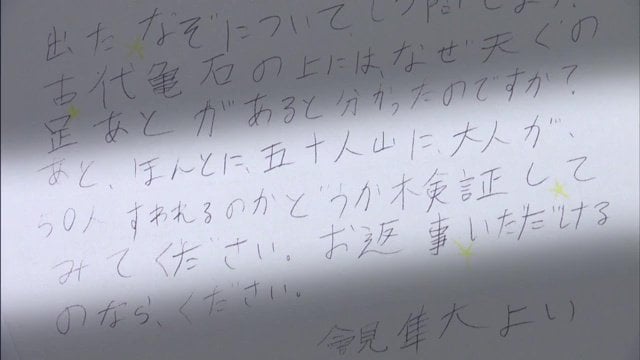 出たなぞについてしつ問します。
古代亀石の上には、なぜ天ぐの
足あとがあると分かったのですか?
あと、ほんとに、五十人山に、大人が、
50人すわれるのかどうか検証して
みてください。お返事いただける
のなら、ください。
隼大より